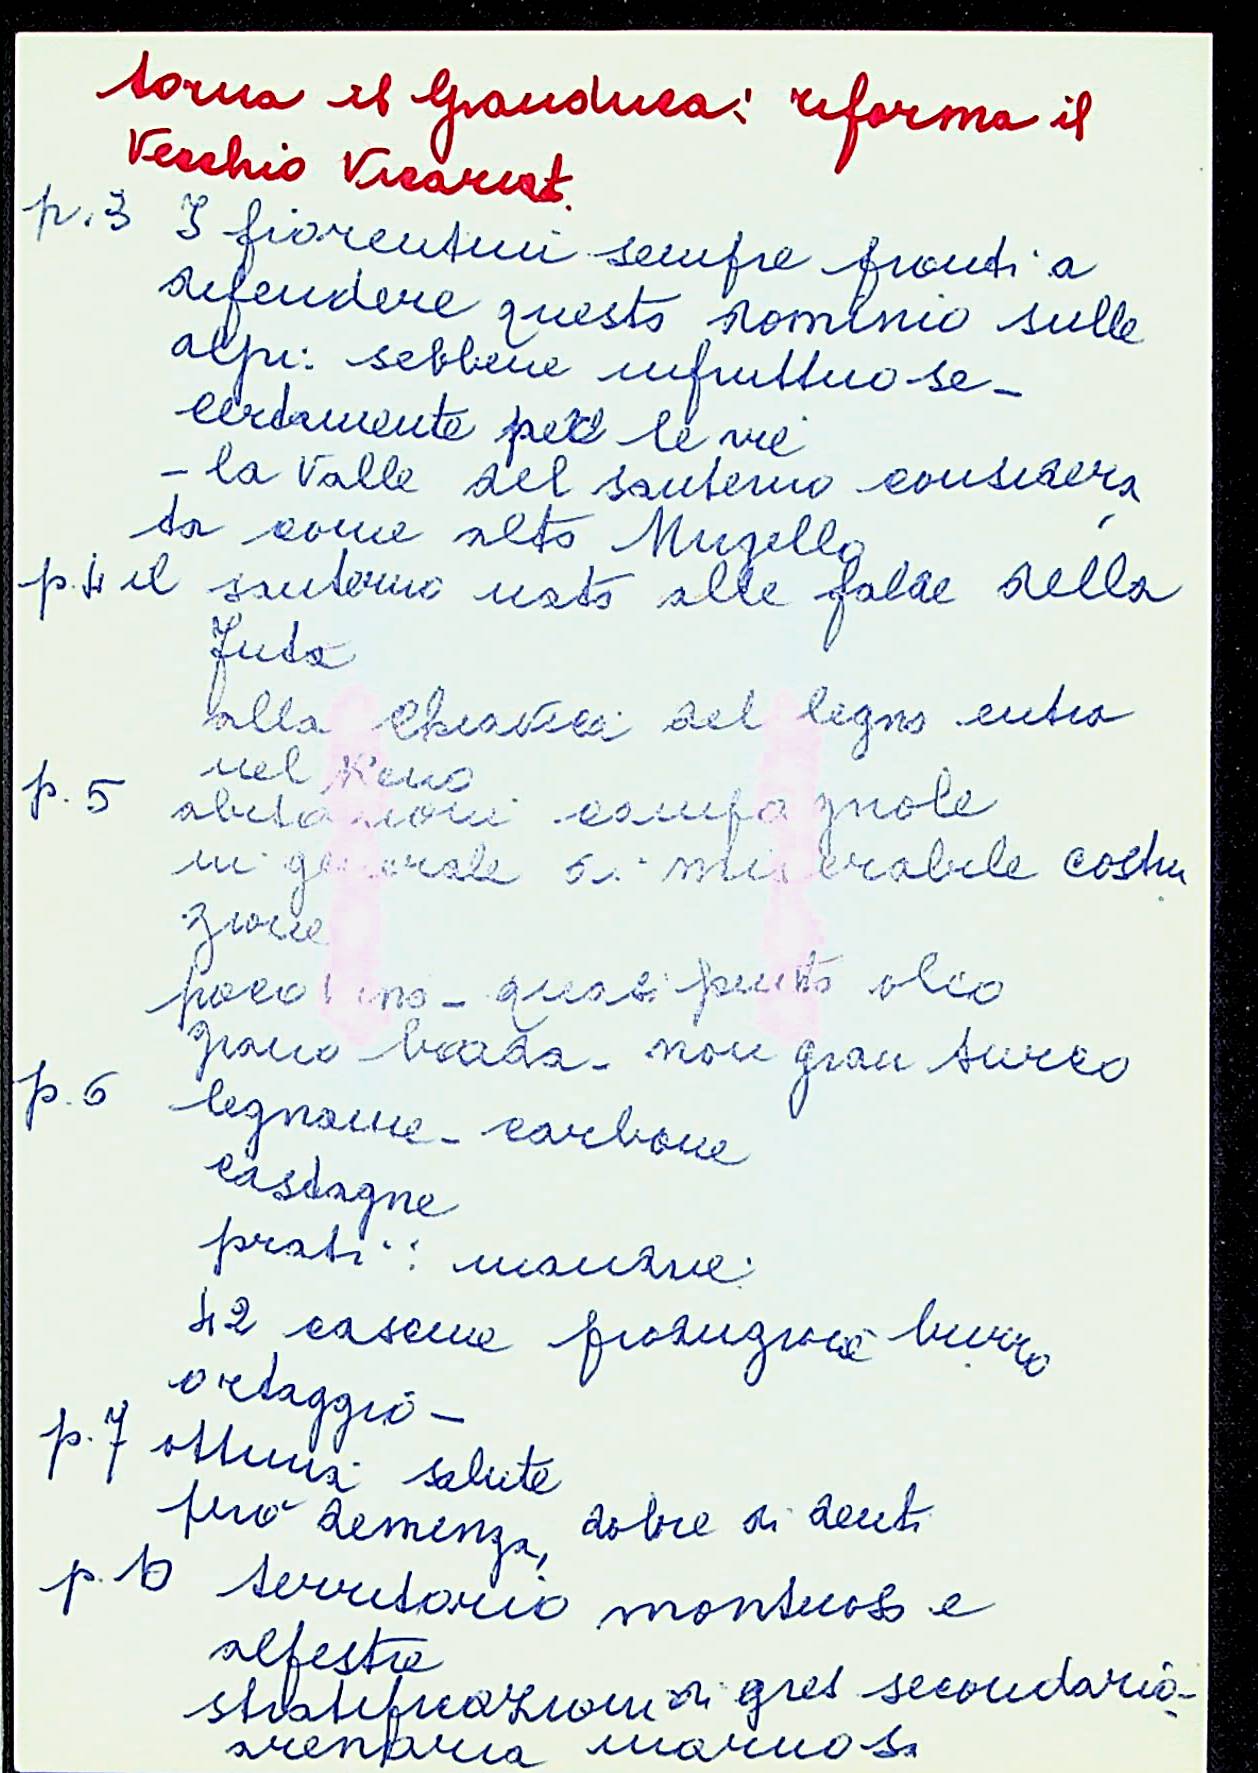 torna il Granduca: riforma il
Vecchio Vicariat.
p.3 I fiorentini sempre pronti a
difendere questo dominio sulle
alpi: sebbene infruttuose -
certamente per le vie
- la Valle del santerno considera
ta come alto Mugello
p.4 il santerno nato alle falde della
Futa
alla Chiavica del legno entra
nel Reno
p.5 abitazioni campagnole
in generale di miserabile costru
zione
poco vino - quasi punto olio
grano biada - non gran turco
p.6 legname - carbone
castagne
prati:
42 cascine produzione burro
ortaggio -
p.7 ottima salute
però demenza, dolore di denti
p.10 territorio montuoso e
alpestre
stratificazioni di gres secondario -
arenaria marnosa